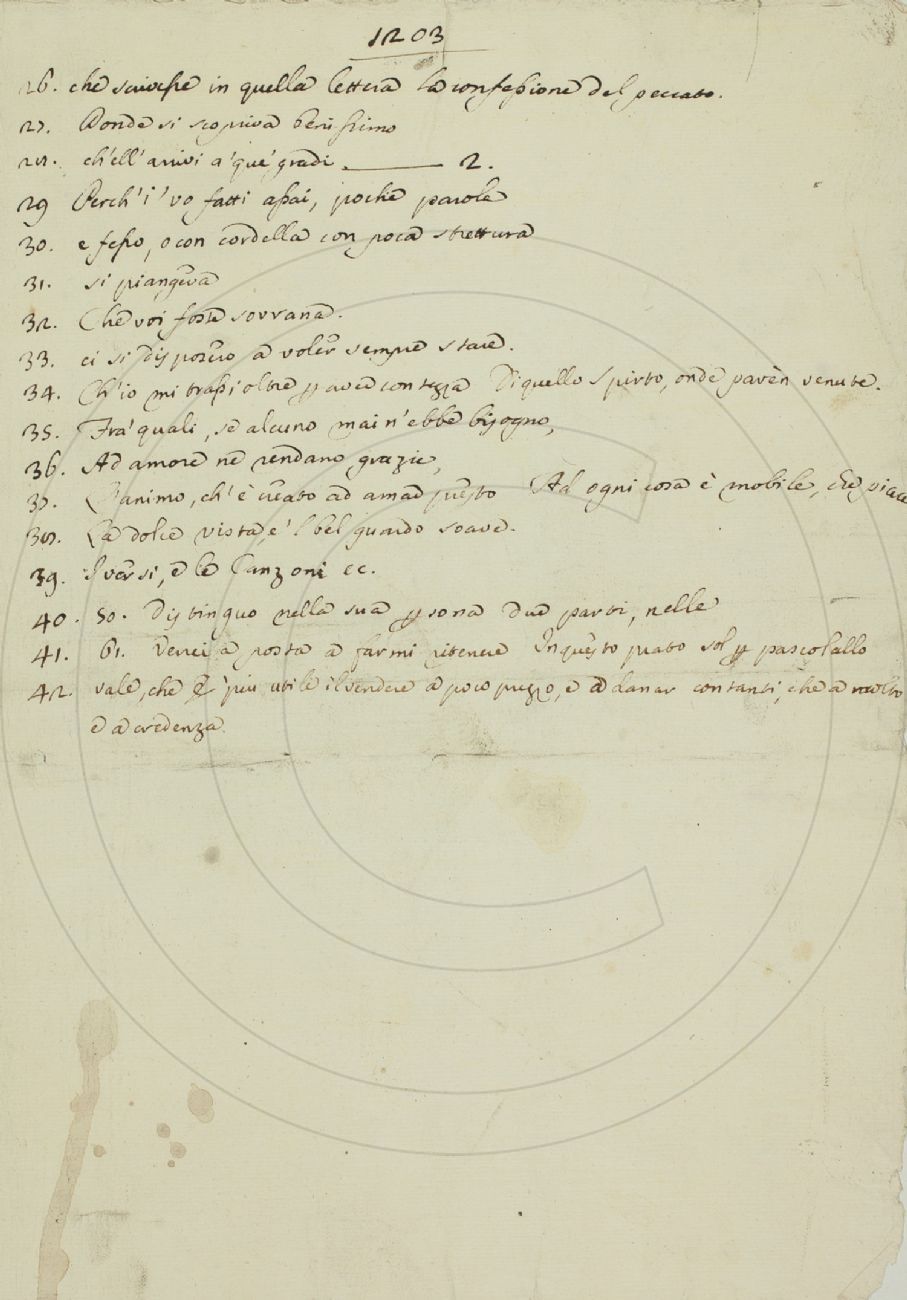 1203
26. che scrivesse in quella lettera la confessione del peccato.
27. Donde si scopriva benissimo
28. ch'ell'arrivi a' que' gradi ——— 2.
29 Perch' i' vo fatti assai, poche parole
30. e fesso, o con cordella con poca strettura
31. si piangeva
32. Che voi foste sovrana.
33. ci si disposero a voler sempre stare.
34. Ch'io mi trassi oltre p aver contezza Di quello Spirto, onde parèn venute.
35. Fra' quali, se alcuno mai n'ebbe bisogno,
36. Ad amore ne rendano grazie,
37. L'animo, ch'è creato ad amar presto Ad ogni cosa è mobile, che piace
38. La dolce vista, e 'l bel guardo soave.
39. I versi, e le Canzoni ec.
40. 50. Distinguo nella sua psona due parti, nelle
41. 61. Verrei a posta a farmi ritenere In questo prato sol p pascolallo
42. vale, che è più utile il vendere a poco prezzo, e a danar contanti, che a molto
e a credenza